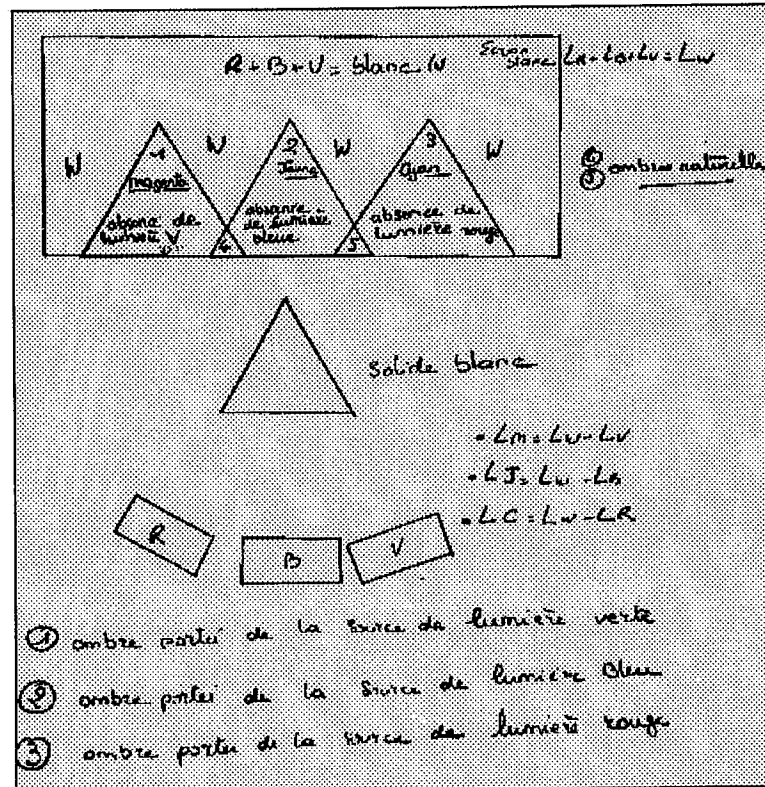 R + B + V = blanc W
Ecran blanc LR + LB + LV = LW
W W W W
1 2 3
magenta Jaune Cyan
absence de lumière V
absence de lumière bleue
absence de lumière rouge
4 5
④ ⑤ ombres naturelles
Solide blanc
• LM = LW - LV
• LJ = LW - LB
• LC = LW - LR
R B V
① ombre portée de la source de lumière verte
② ombre portée de la source de lumière bleue
③ ombre portée de la source de lumière rouge